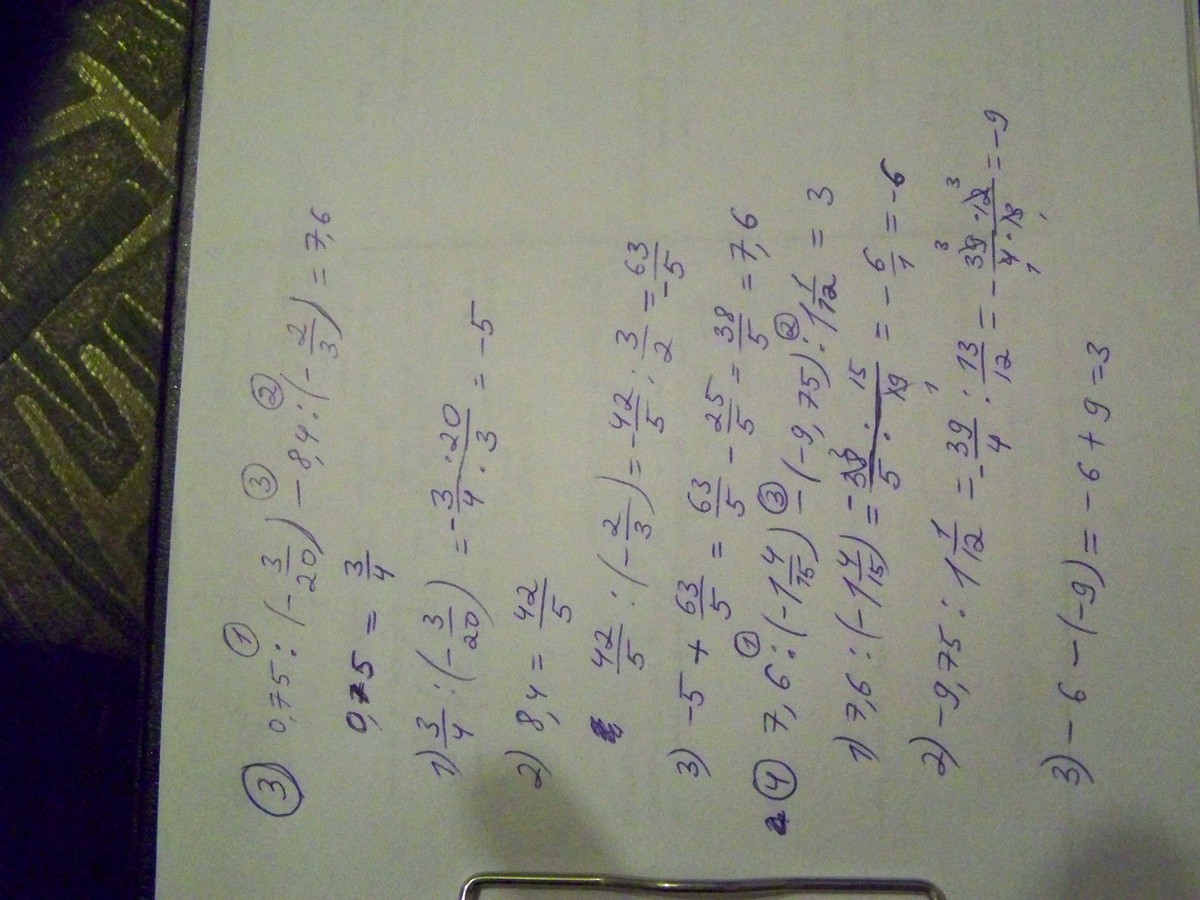 ③ 0,75 : (-3/20) - 8,4 : (-2/3) = 7,6
0,75 = 3/4
1) 3/4 : (-3/20) = -3/4 · 20/3 = -5
2) 8,4 = 42/5
42/5 : (-2/3) = -42/5 · 3/2 = -63/5
3) -5 + 63/5 = 63/5 - 25/5 = 38/5 = 7,6
④ 7,6 : (-1 4/15) - (-9,75) : 1 1/12 = 3
1) 7,6 : (-1 4/15) = -38/5 · 15/19 = -6/1 = -6
2) -9,75 : 1 1/12 = -39/4 : 13/12 = -39·12/4·13 = -9
3) -6 - (-9) = -6 + 9 = 3